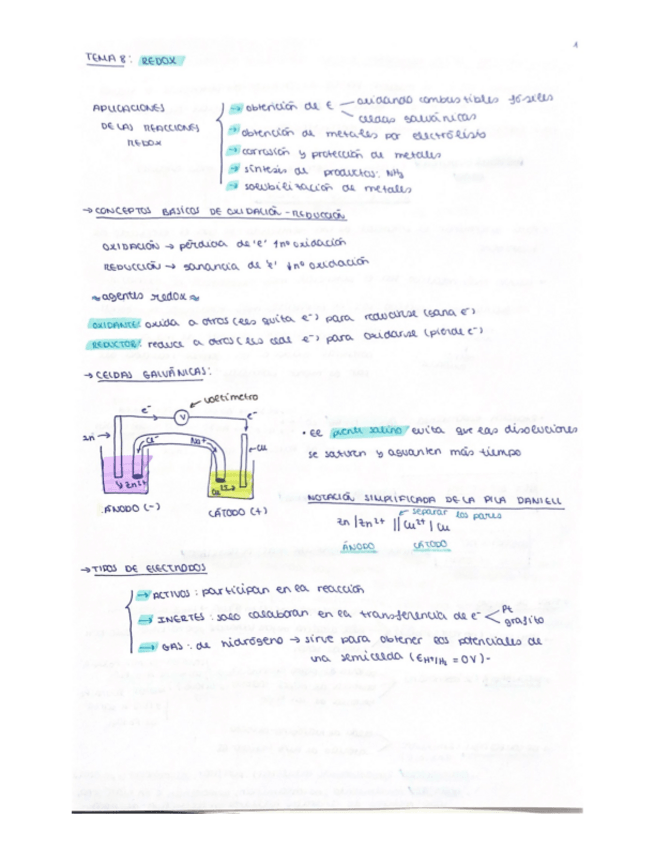 1
TEMA 8: REDOX
APLICACIONES DE LAS REACCIONES REDOX
→ obtención de E — oxidando combustibles fósiles
celdas galvánicas
→ obtención de metales por electrólisis
→ corrosión y protección de metales
→ síntesis de productos: NH3
→ solubilización de metales
→ CONCEPTOS BÁSICOS DE OXIDACIÓN-REDUCCIÓN
OXIDACIÓN → pérdida de 'e-' ↑nº oxidación
REDUCCIÓN → ganancia de 'e-' ↓nº oxidación
≈ agentes redox ≈
OXIDANTE: oxida a otros (les quita e-) para reducirse (gana e-)
REDUCTOR: reduce a otros (les cede e-) para oxidarse (pierde e-)
→ CELDAS GALVÁNICAS:
voltímetro
e- V e-
Zn Cl- Na+ Cu
Zn2+ Cu2+
ÁNODO (-) CÁTODO (+)
• El puente salino evita que las disoluciones
se saturen y aguanten más tiempo
NOTACIÓN SIMPLIFICADA DE LA PILA DANIELL
separar los pares
Zn | Zn2+ || Cu2+ | Cu
ÁNODO CÁTODO
→ TIPOS DE ELECTRODOS
→ ACTIVOS: participan en la reacción
→ INERTES: solo colaboran en la transferencia de e- < Pt
grafito
→ GAS: de hidrógeno → sirve para obtener los potenciales de
una semicelda (EH+/H2 = 0V)-